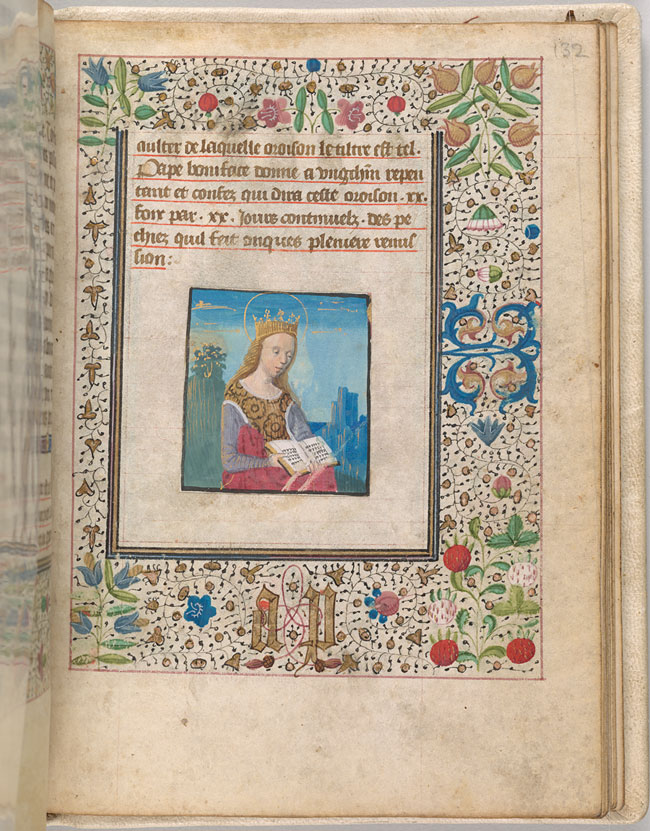 132
aulter de laquelle oroison le tiltre est tel.
Pape boniface donne a vngchūn repen
tant et confez qui dira ceste oroison .xx.
foix par .xx. Jours continuelz . des pe
chiez quil feit onques pleniere remis
sion:
A P